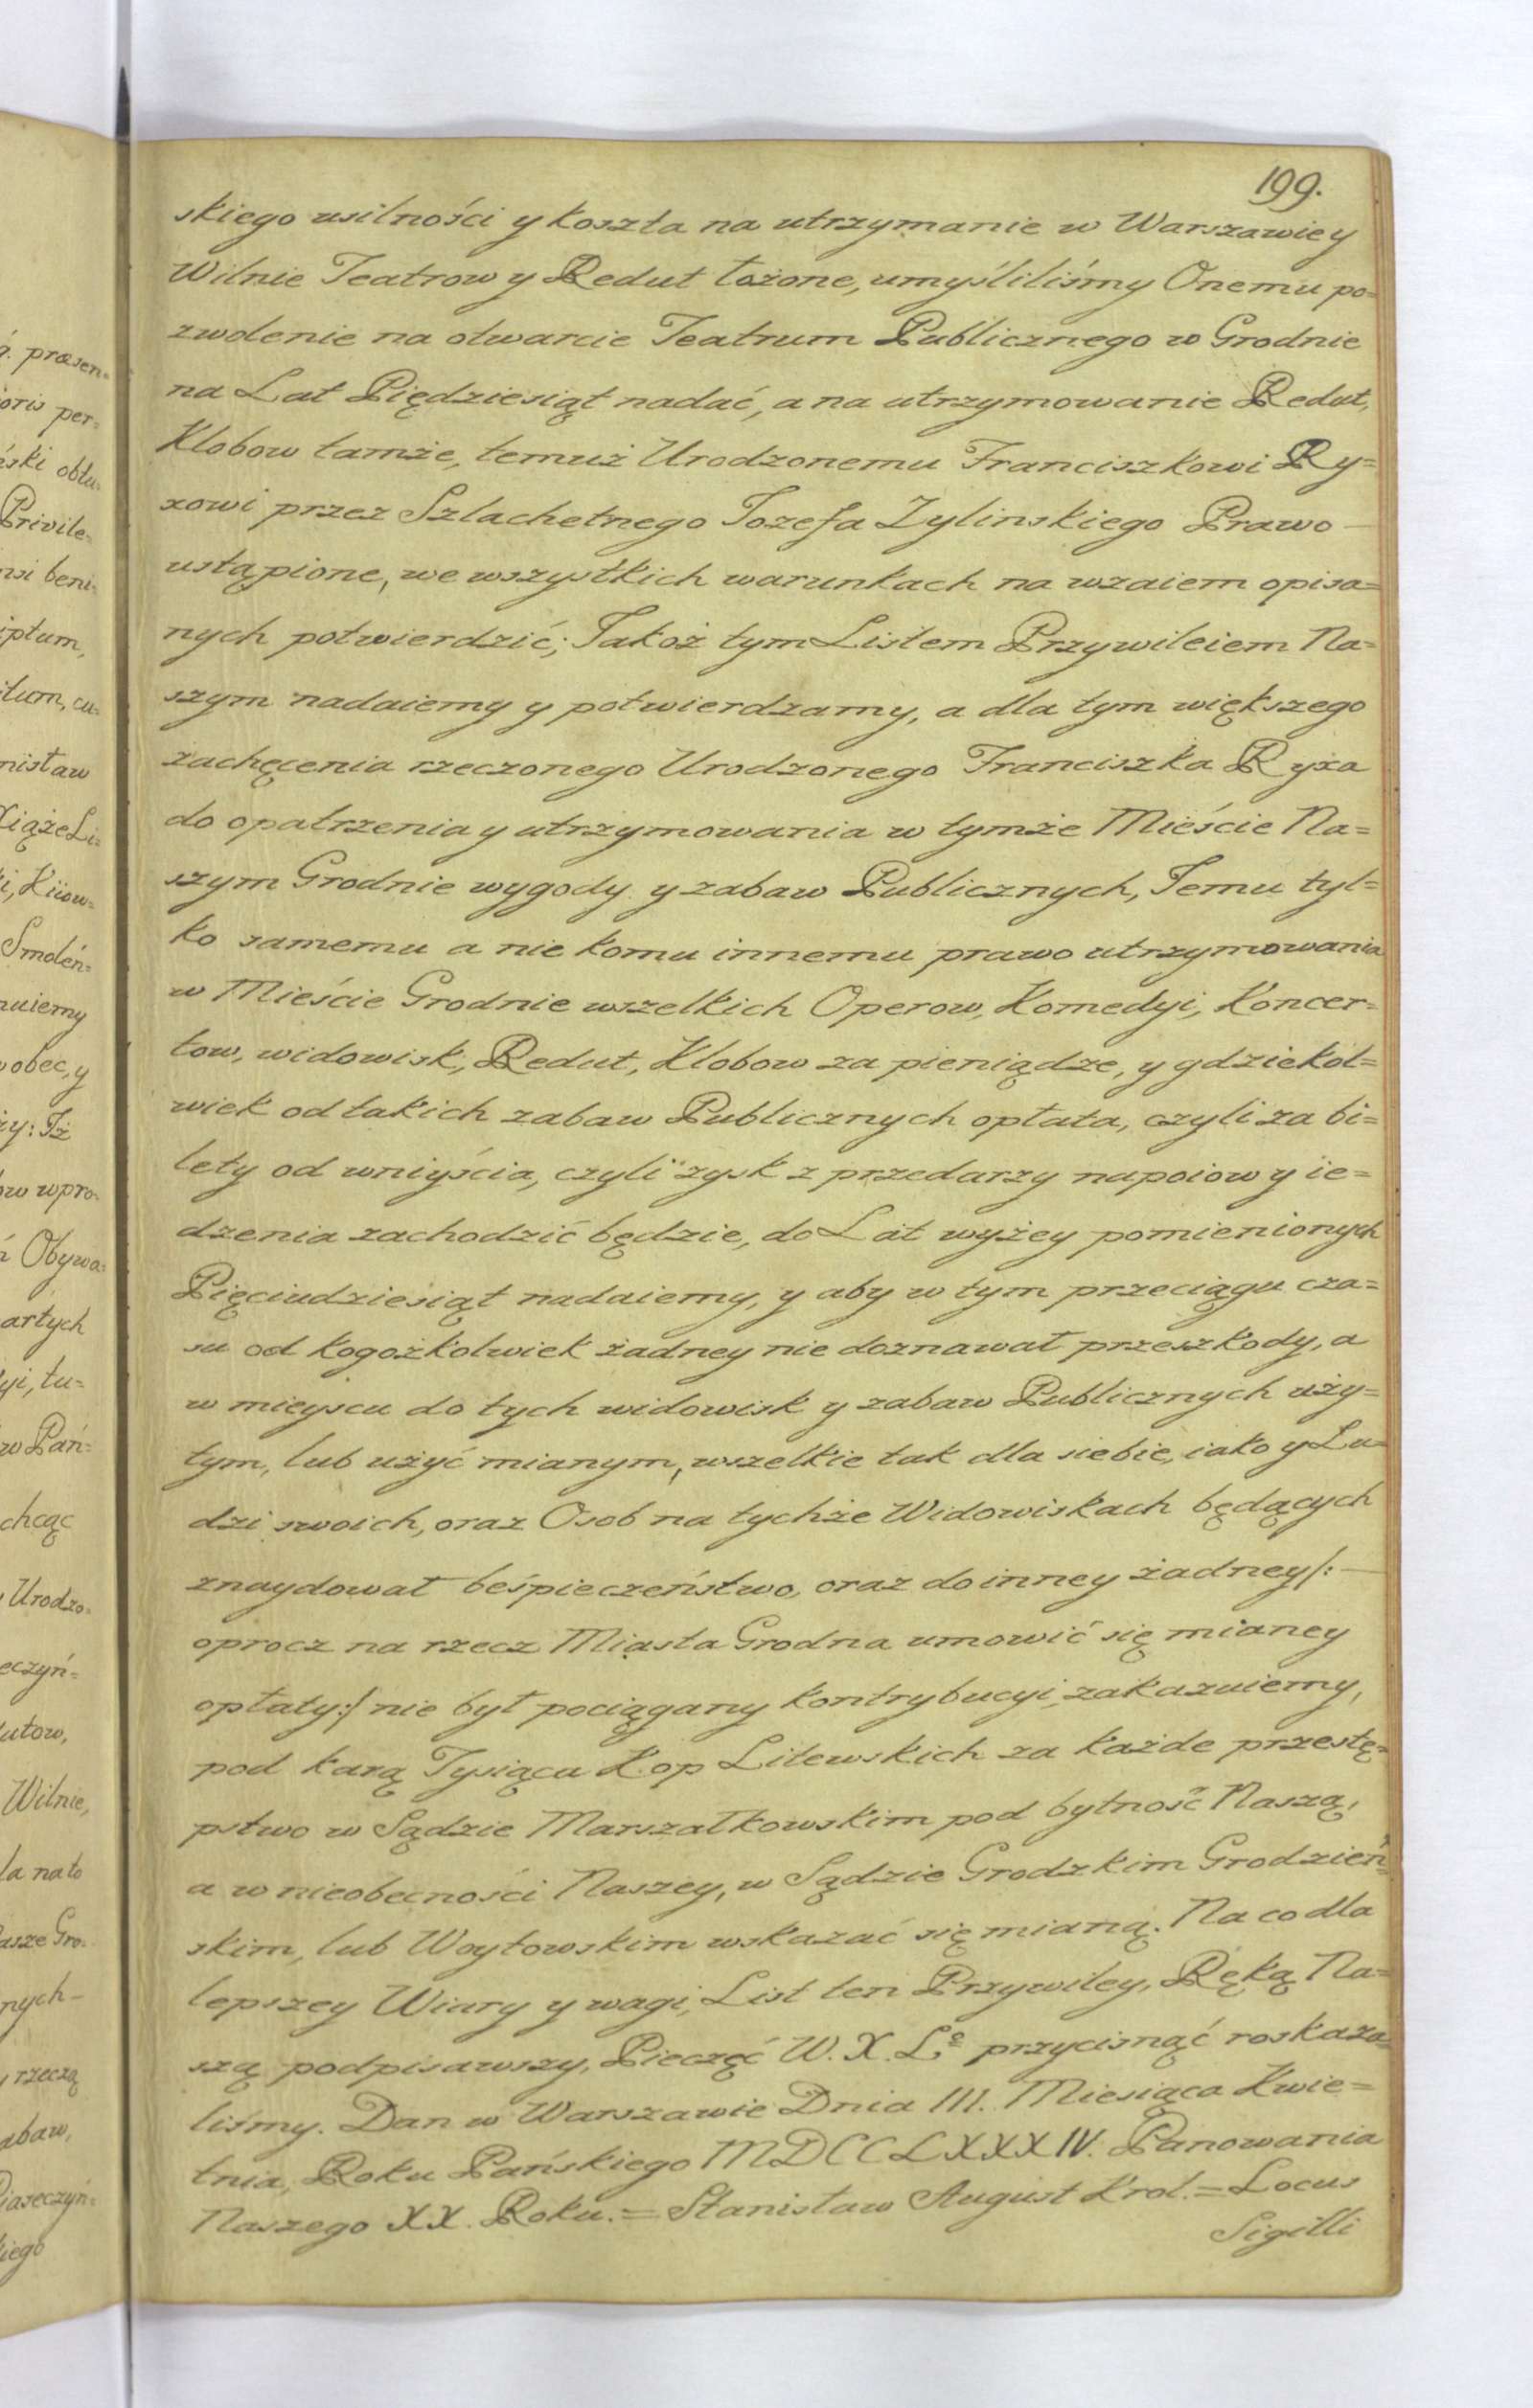 199.
skiego usilności y koszta na utrzymanie w Warszawie y
Wilnie Teatrow y Redut łożone, umyśliliśmy Onemu po=
zwolenie na otwarcie Teatrum Publicznego w Grodnie
na Lat Piędziesiąt nadać, a na utrzymowanie Redut,
Klobow tamże, temuż Urodzonemu Franciszkowi Ry=
xowi przez Szlachetnego Jozefa Zylinskiego Prawo —
ustąpione, we wszystkich warunkach na wzaiem opisa=
nych potwierdzić; Jakoż tym Listem Przywileiem Na=
szym nadaiemy y potwierdzamy, a dla tym większego
zachęcenia rzeczonego Urodzonego Franciszka Ryxa
do opatrzenia y utrzymowania w tymże Mieście Na=
szym Grodnie wygody y zabaw Publicznych, Temu tyl=
ko samemu a nie komu innemu prawo utrzymowania
w Mieście Grodnie wszelkich Operow, Komedyi, Koncer=
tow, widowisk, Redut, Klobow za pieniądze, y gdziekol=
wiek od takich zabaw Publicznych opłata, czyli za bi=
lety od wniyścia, czyli zysk z przedarzy napoiow y ie=
dzenia zachodzić będzie, do Lat wyżey pomienionych
Pięciudziesiąt nadaiemy, y aby w tym przeciągu cza=
su od kogożkolwiek żadney nie doznawał przeszkody, a
w mieyscu do tych widowisk y zabaw Publicznych uży=
tym, lub użyć mianym, wszelkie tak dla siebie, iako y Lu=
dzi swoich, oraz Osob na tychże Widowiskach będących
znaydował beśpieczeństwo, oraz do inney żadney/: —
oprocz na rzecz Miasta Grodna umowić się mianey
opłaty:/ nie był pociągany kontrybucyi, zakazuiemy,
pod karą Tysiąca Kop Litewskich za każde przestę=
pstwo w Sądzie Marszałkowskim pod bytność Naszą,
a w nieobecności Naszey, w Sądzie Grodzkim Grodzień=
skim, lub Woytowskim wskazać się mianą. Na co dla
lepszey Wiary y wagi, List ten Przywiley, Ręką Na=
szą podpisawszy, Pieczęć W. X. Lº przycisnąć roskaza=
liśmy. Dan w Warszawie Dnia III. Miesiąca Kwie=
tnia, Roku Pańskiego MDCCLXXXIV. Panowania
Naszego XX. Roku. = Stanisław August Krol. = Locus
Sigilli
ą. præsen=
oris per=
ński obtu=
Privile=
nsi beni=
iptum,
itum, cu=
nisław
Xiąże Li=
ki, Kiiow=
Smoleń=
nuiemy
wobec, y
ży: Iż
ow wpro=
ń Obywa=
artych
yi, tu=
w Pań=
chcąc
Urodzo=
eczyń=
utow,
Wilnie,
la na to
asze Gro=
nych —
y rzeczą
abaw,
iaseczyń=
kiego